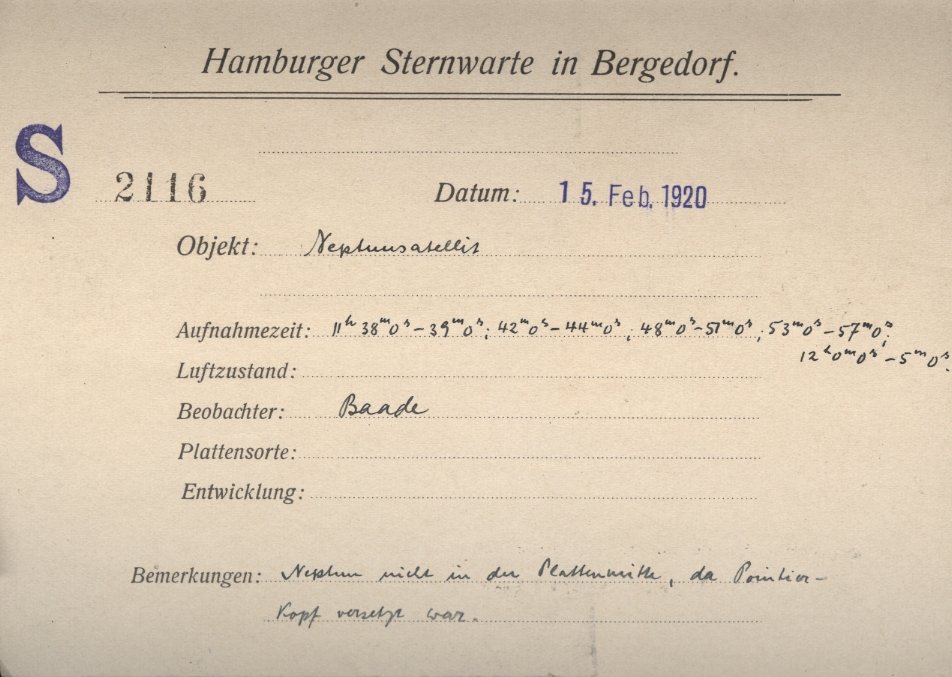 Hamburger Sternwarte in Bergedorf.
S 2116 Datum: 15. Feb. 1920
Objekt: Neptunsatellit
Aufnahmezeit: 11ʰ 38ᵐ0ˢ – 39ᵐ0ˢ; 42ᵐ0ˢ – 44ᵐ0ˢ; 48ᵐ0ˢ – 51ᵐ0ˢ; 53ᵐ0ˢ – 57ᵐ0ˢ;
12ʰ0ᵐ0ˢ – 5ᵐ0ˢ.
Luftzustand:
Beobachter: Baade
Plattensorte:
Entwicklung:
Bemerkungen: Neptun nicht in der Plattenmitte, da Pointier-
Kopf versetzt war.